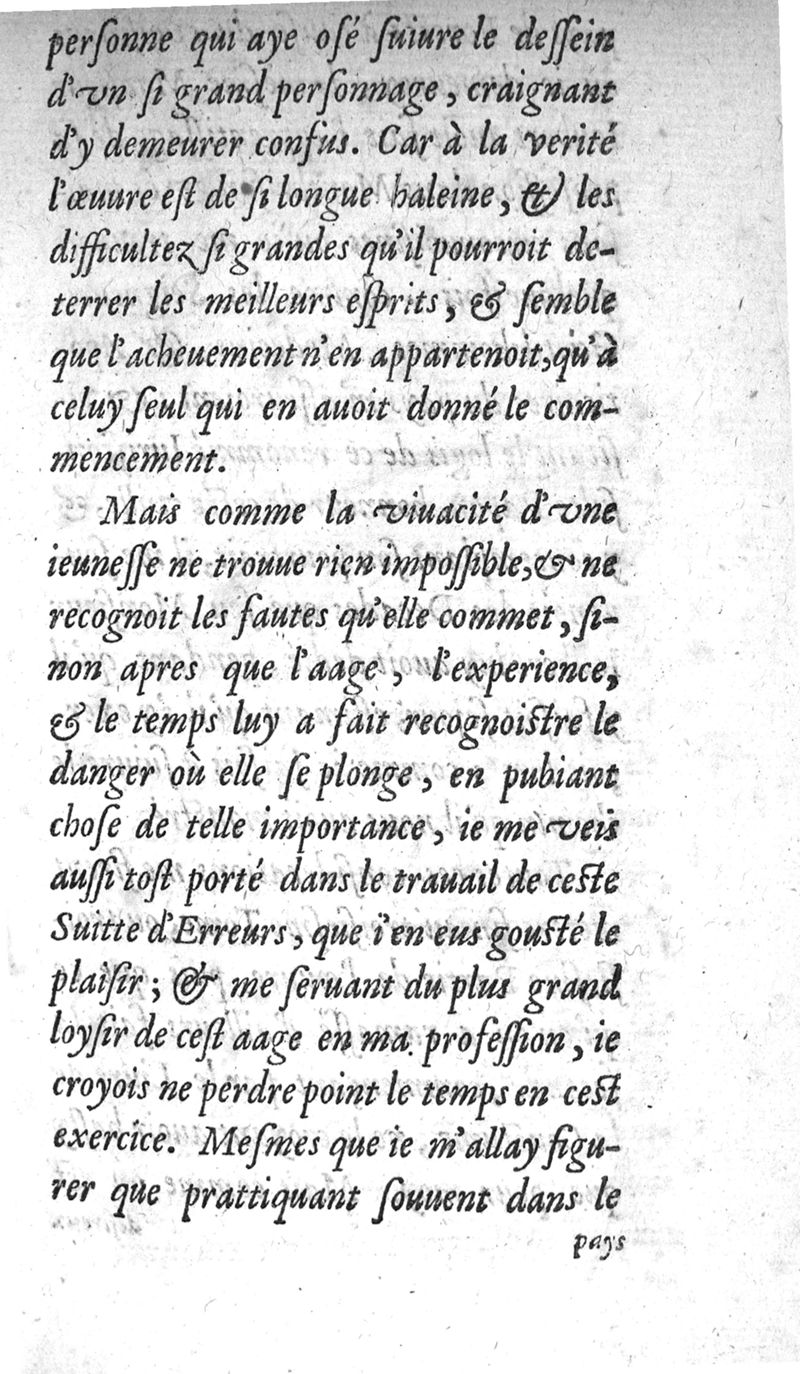 perſonne qui aye oſé ſuiure le deſſein
d'vn ſi grand perſonnage, craignant
d'y demeurer confus. Car à la verité
l'œuure eſt de ſi longue haleine, & les
difficultez ſi grandes qu'il pourroit de-
terrer les meilleurs eſprits, & ſemble
que l'acheuement n'en appartenoit, qu'à
celuy ſeul qui en auoit donné le com-
mencement.
Mais comme la viuacité d'vne
ieuneſſe ne trouue rien impoſſible, & ne
recognoit les fautes qu'elle commet, ſi-
non apres que l'aage, l'experience,
& le temps luy a fait recognoiſtre le
danger où elle ſe plonge, en pubiant
choſe de telle importance, ie me veis
auſſi toſt porté dans le trauail de ceſte
Suitte d'Erreurs, que i'en eus gouſté le
plaiſir; & me ſeruant du plus grand
loyſir de ceſt aage en ma profeſſion, ie
croyois ne perdre point le temps en ceſt
exercice. Meſmes que ie m'allay figu-
rer que prattiquant ſouuent dans le
pays